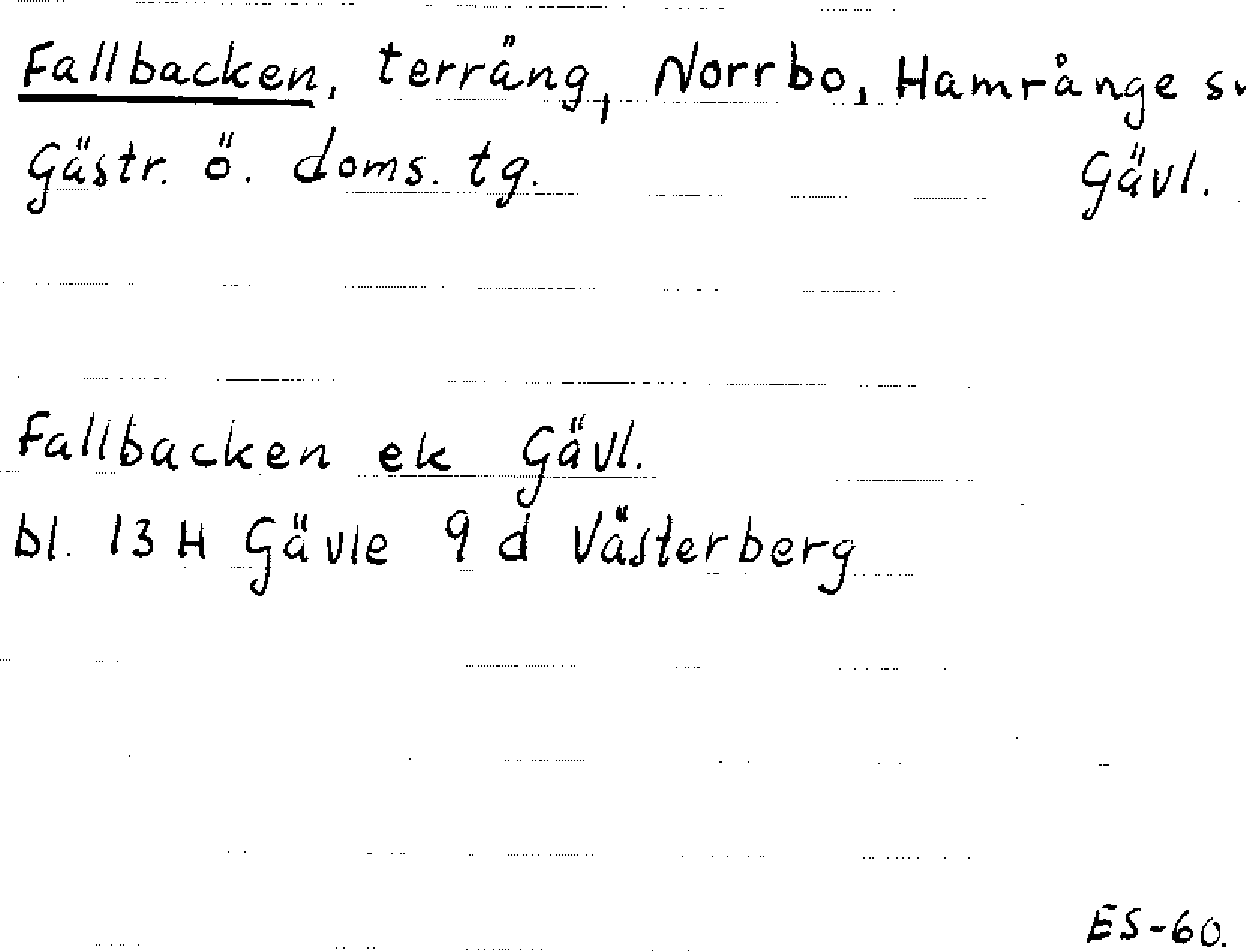 Fallbacken, terräng, Norrbo, Hamrånge
Gästr. ö. doms. tg. Gävl.
Fallbacken ek Gävl.
bl. 13 H Gävle 9 d Västerberg
ES-60.